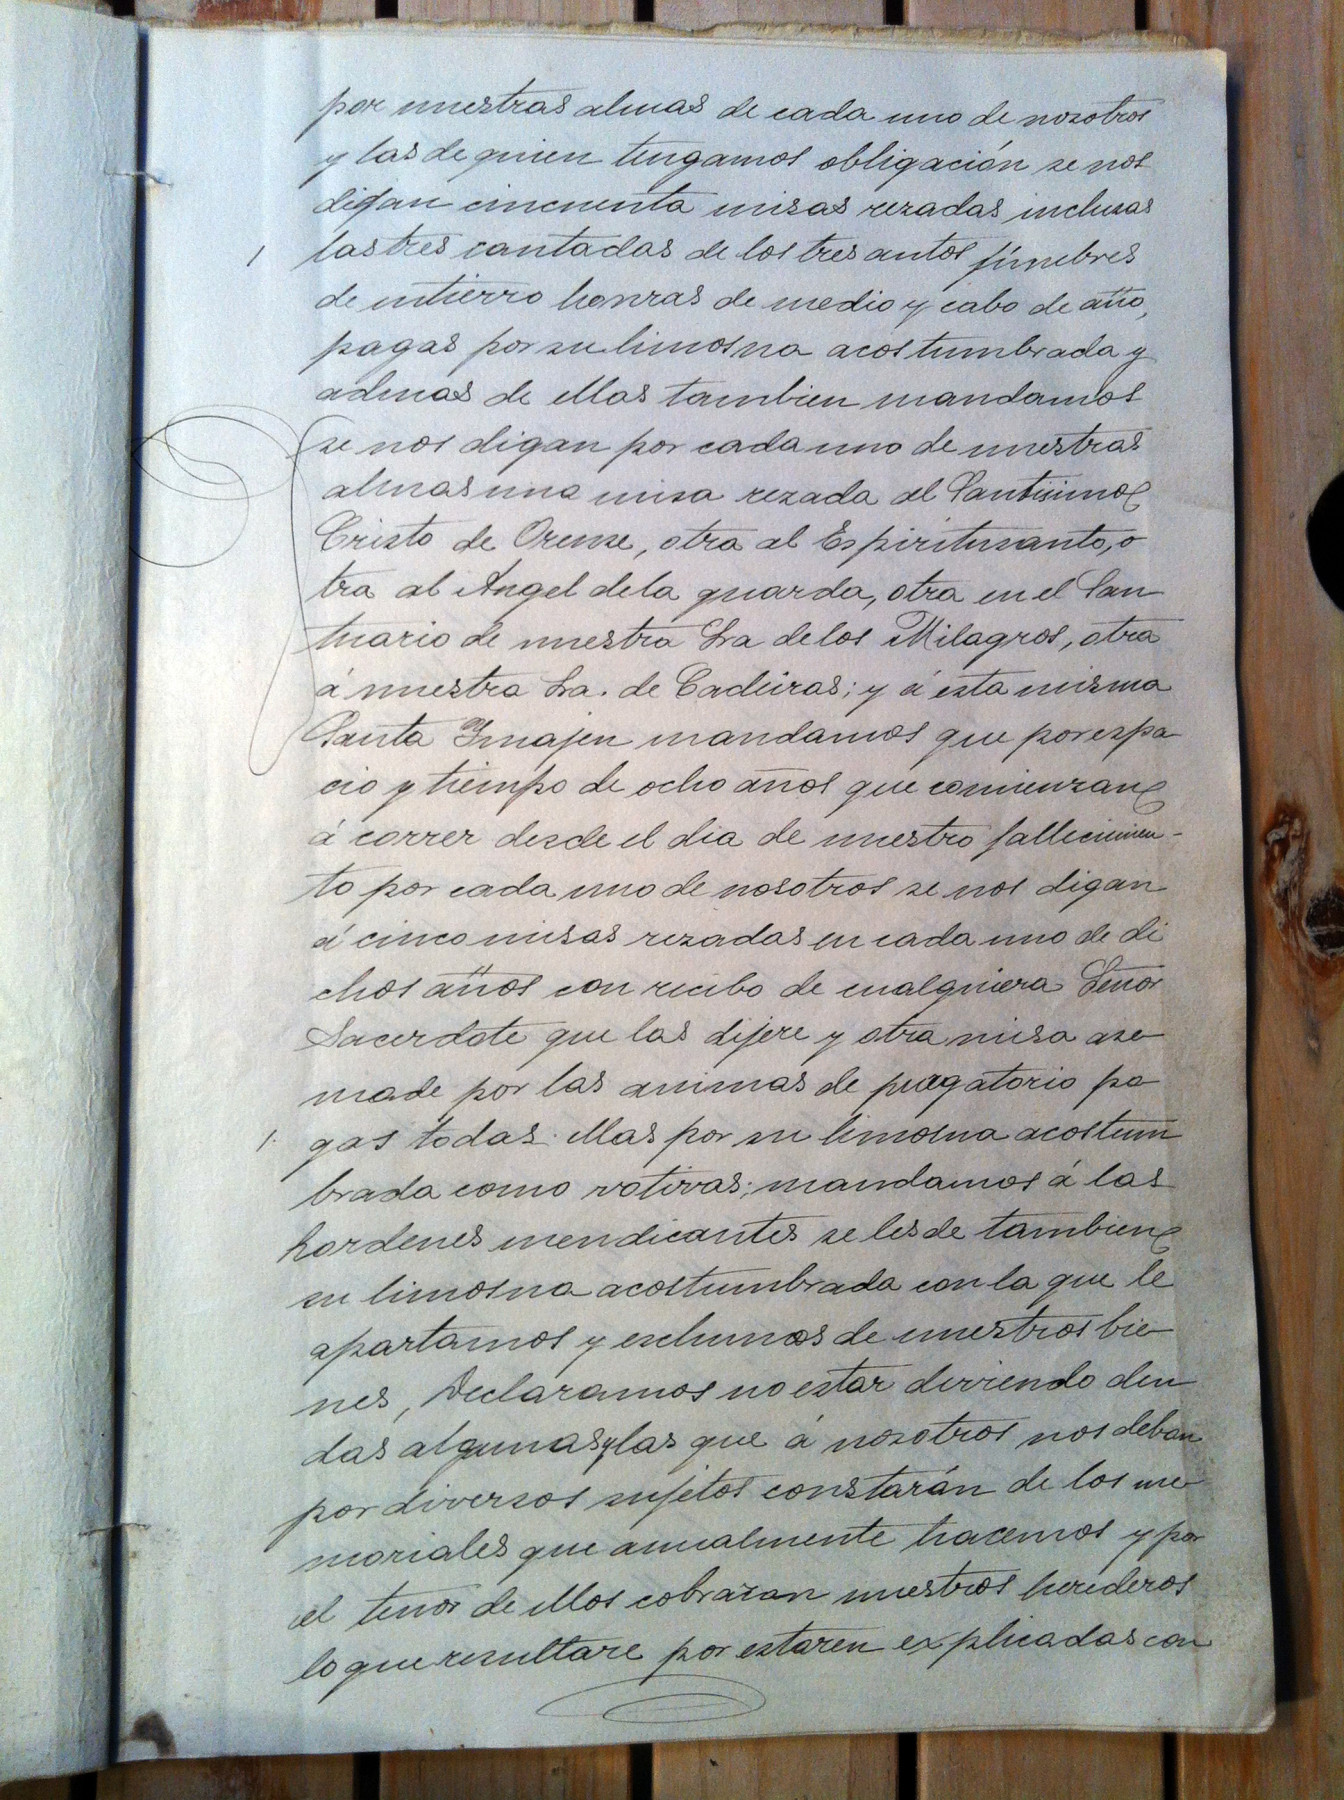 por nuestras almas de cada uno de nosotros
y las de quien tengamos obligación se nos
digan cincuenta misas rezadas inclusas
las tres cantadas de los tres autos fúnebres
de entierro honras de medio y cabo de año,
pagas por su limosna acostumbrada y
admas de ellas tambien mandamos
se nos digan por cada uno de nuestras
almas una misa rezada al Santisimo
Cristo de Orense, otra al Espiritusanto, o
tra al Angel dela guarda, otra en el San
tuario de nuestra Sra delos Milagros, otra
á nuestra Sra. de Cadeiras; y á esta misma
Santa Ymajen mandamos que por espa
cio y tiempo de ocho años que comienzan
á correr desde el dia de nuestro fallecimien-
to por cada uno de nosotros se nos digan
á cinco misas rezadas en cada uno de di
chos años con recibo de cualquiera Señor
Sacerdote que las dijere y otra misa ase
made por las animas de purgatorio pa
gas todas ellas por su limosna acostum
brada como votivas; mandamos á las
hordenes mendicantes se les de tambien
su limosna acostumbrada con la que le
apartamos y escluimos de nuestros bie
nes, Declaramos no estar diviendo deu
das algunas y las que á nosotros nos deban
por diversos sujetos constarán de los me
moriales que anualmente hacemos y por
el tenor de ellos cobraran nuestros herederos
lo que resultare por estaren explicadas con